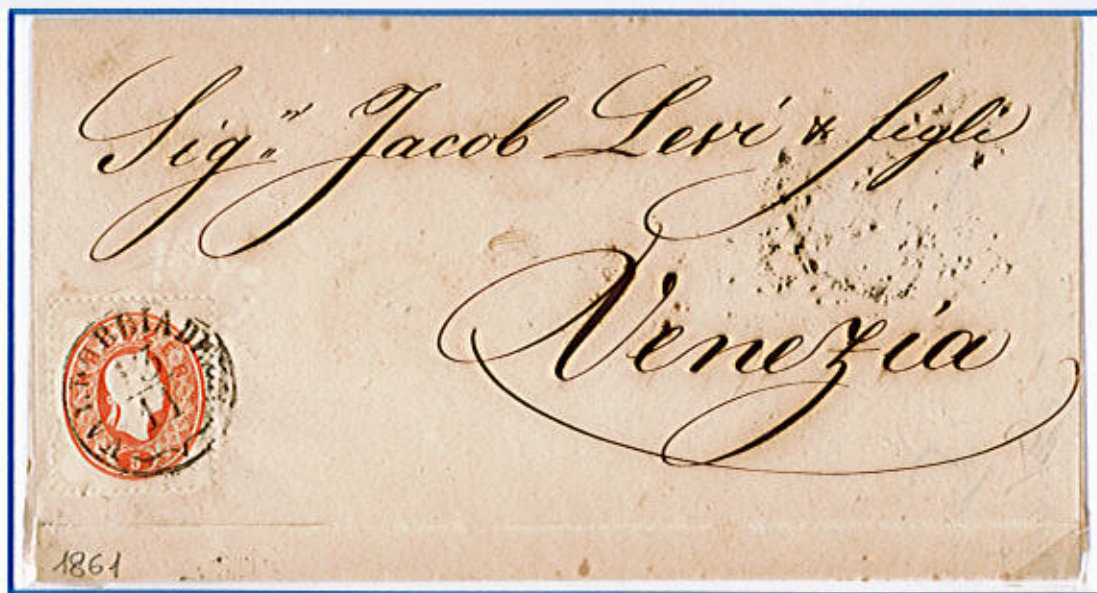 Sig.ri Jacob Levi & figli
Venezia
VALDOBBIADENE
11
5
1861